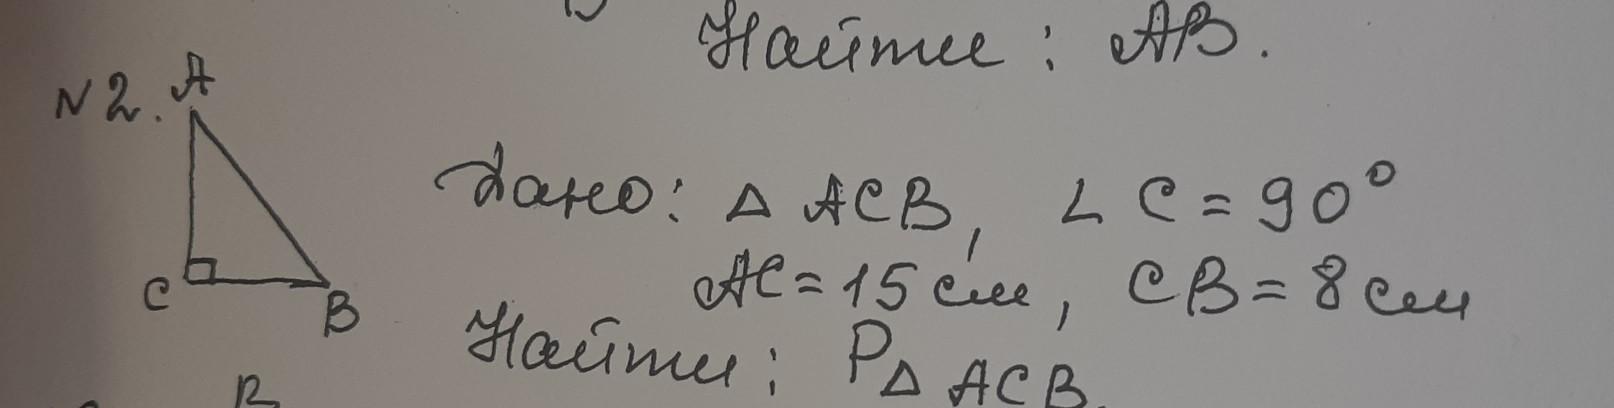 Найти: AB.
N2. A
Дано: △ ACB, ∠ C = 90°
AC = 15 см, CB = 8 см
C
B
Найти: P△ ACB.